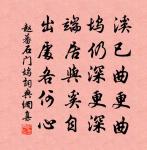 溪已曲更曲
坞仍深更深
端居与奚自
出处各何心
赵蕃石门坞词典网集